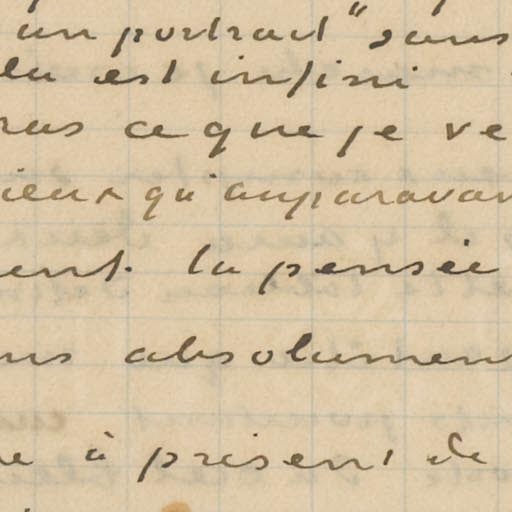 un portrait "sans
la est infini
ras ce que je ve
ieux qu'auparavan
ent. la pensée
ns absolumen
e à présent de